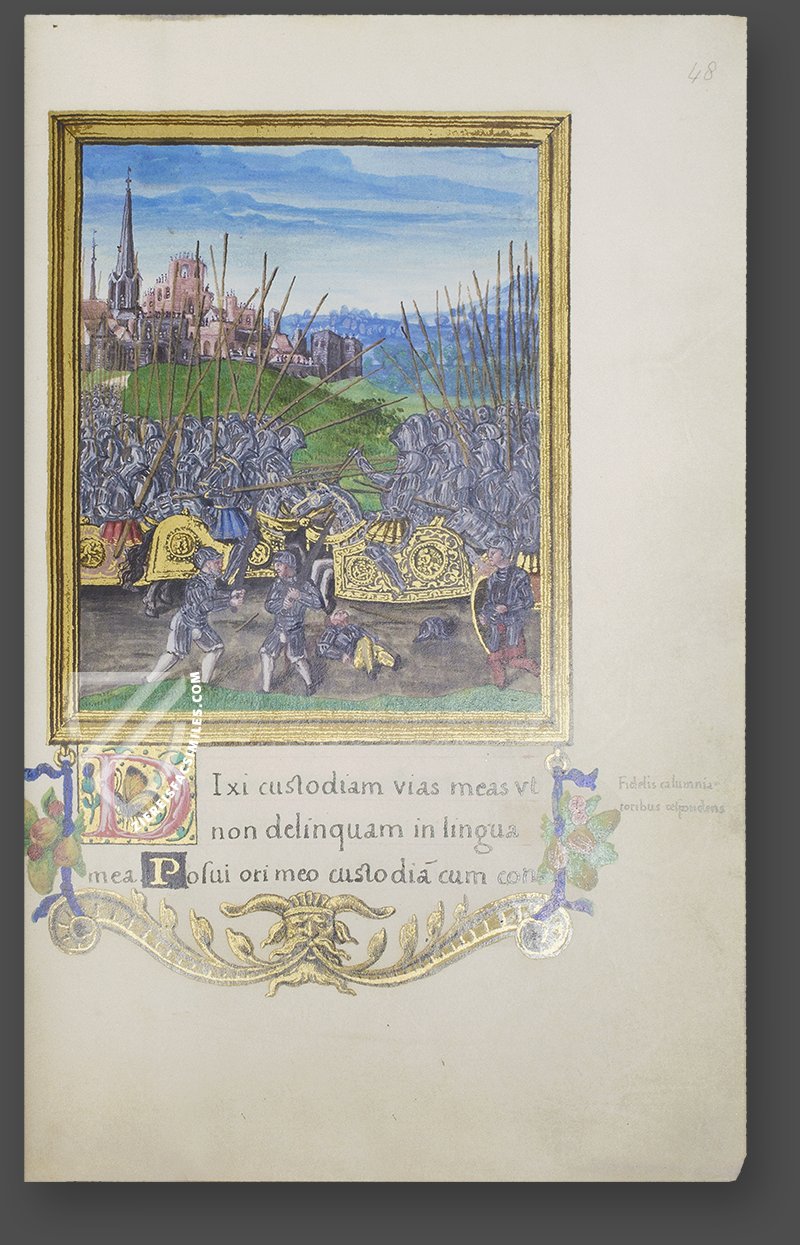 48
DIxi custodiam vias meas vt
non delinquam in lingua
mea Posui ori meo custodiā cum con
Fidelis calumnia-
toribus
ZIEREIS FACSIMILES.COM